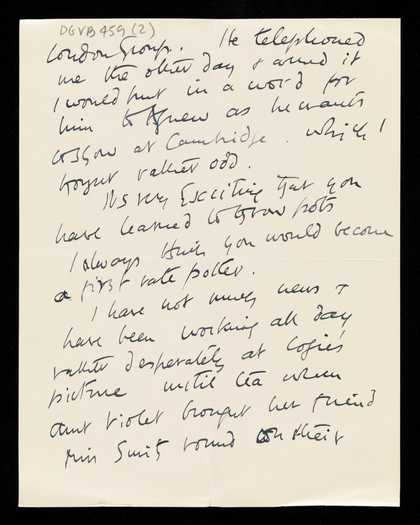 DGVB 459 (2)
London Group. He telephoned
me the other day & asked if
I would put in a word for
him to Agnew as he wants
to show at Cambridge. which I
thought rather odd.
It's very Exciting that you
have learned to throw pots
I always think you would become
a first rate potter.
I have not much news &
have been working all day
rather desperately at Logie's
picture until tea when
aunt Violet brought her friend
Miss Smith round on their